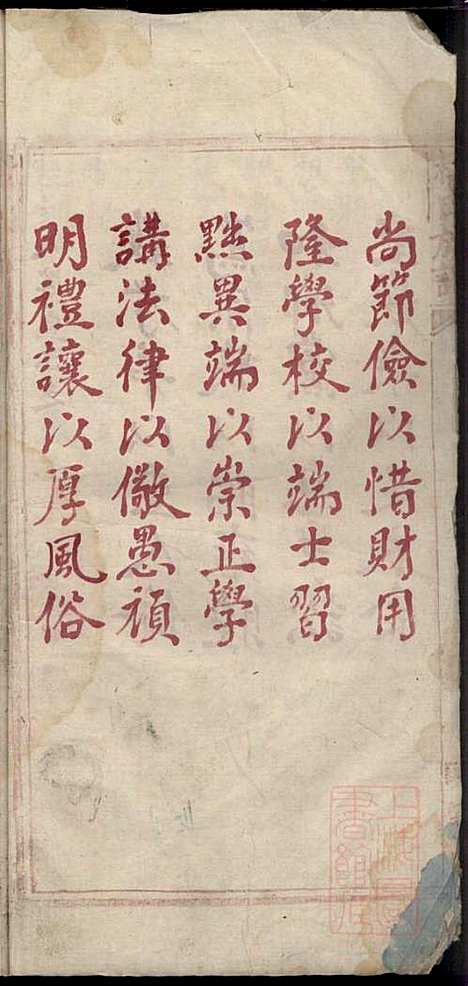 尚節儉以惜財用
隆學校以端士習
黜異端以崇正學
講法律以儆愚頑
明禮讓以厚風俗